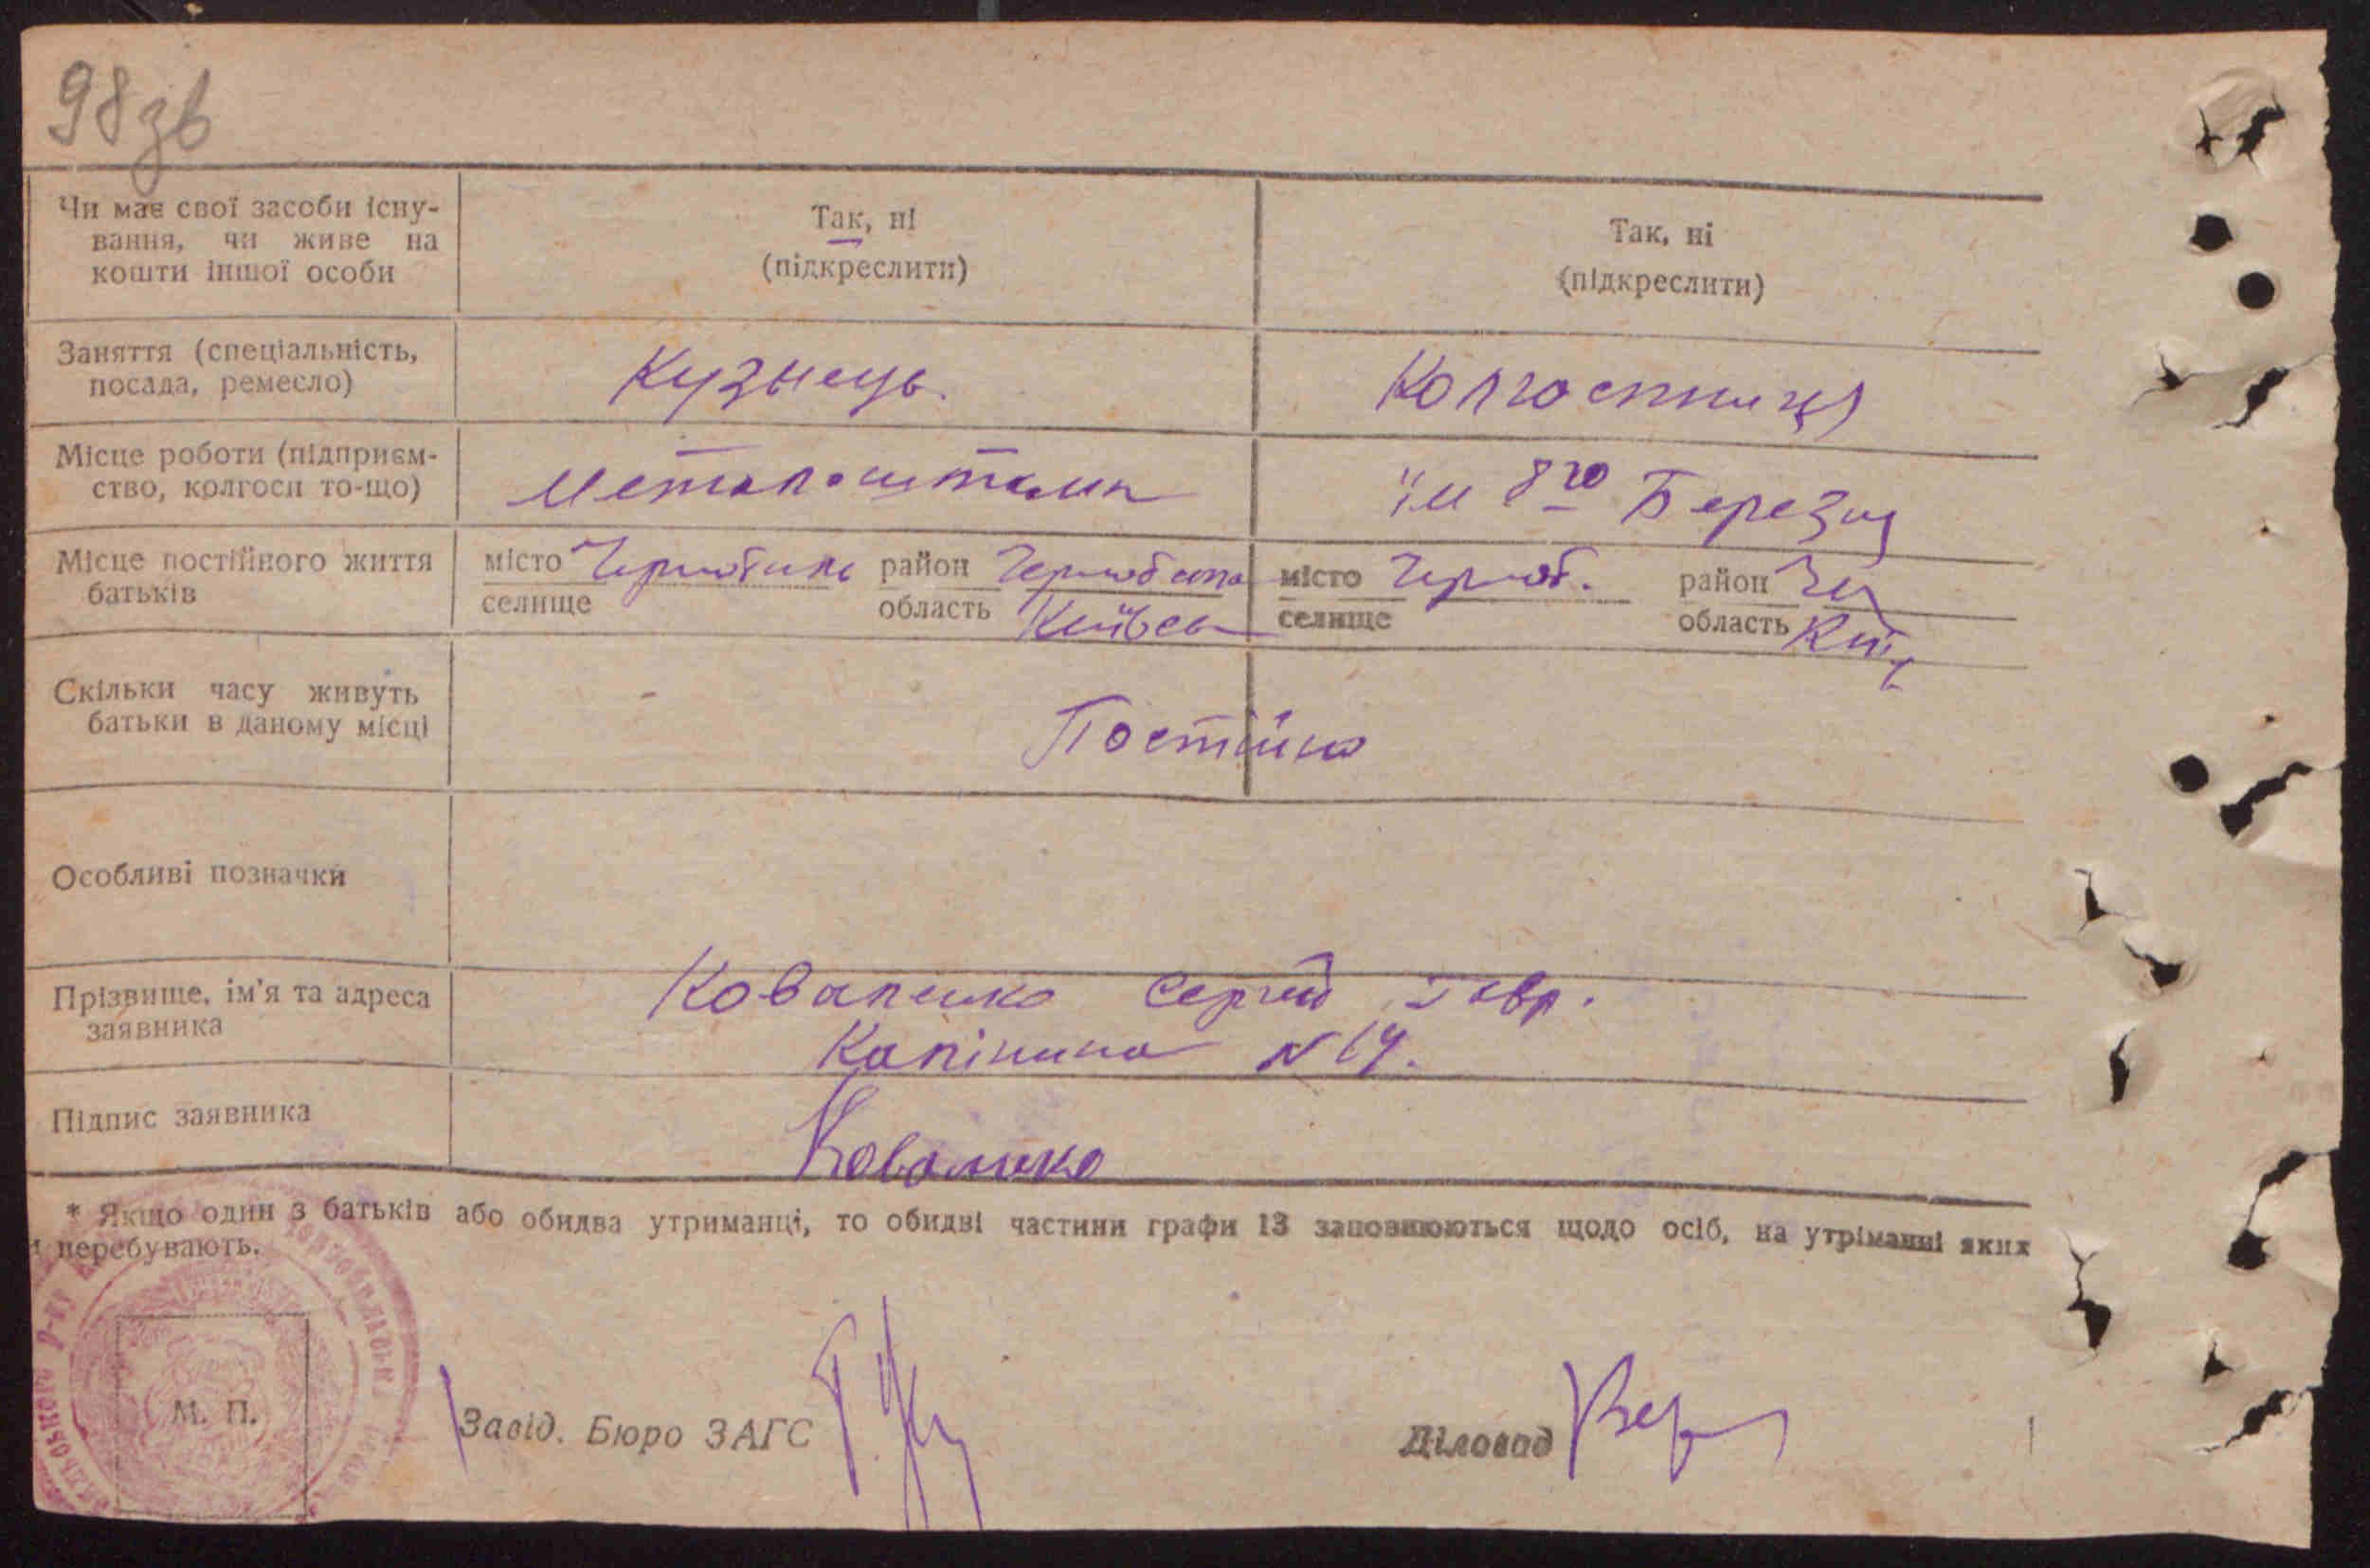 98зв
Чи має свої засоби існу-
вання, чи живе на
кошти іншої особи
Так, ні
(підкреслити)
Так, ні
(підкреслити)
Заняття (спеціальність,
посада, ремесло)
Кузнець.
Колгоспниця
Місце роботи (підприєм-
ство, колгосп то-що)
Металоштамп
ім 8го Березня
Місце постійного життя
батьків
місто Чернобиль район
селище область Київськ
місто Черноб. район Че
селище область Київ
Скільки часу живуть
батьки в даному місці
Постійно
Особливі позначки
Прізвище, ім'я та адреса
заявника
Коваленко Сергій Гавр.
Калініна N 14.
Підпис заявника
Коваленко
* Якщо один з батьків або обидва утриманці, то обидві частини графи 13 заповнюються щодо осіб, на утріманні яких
и перебувають.
М. П.
Завід. Бюро ЗАГС
Діловод